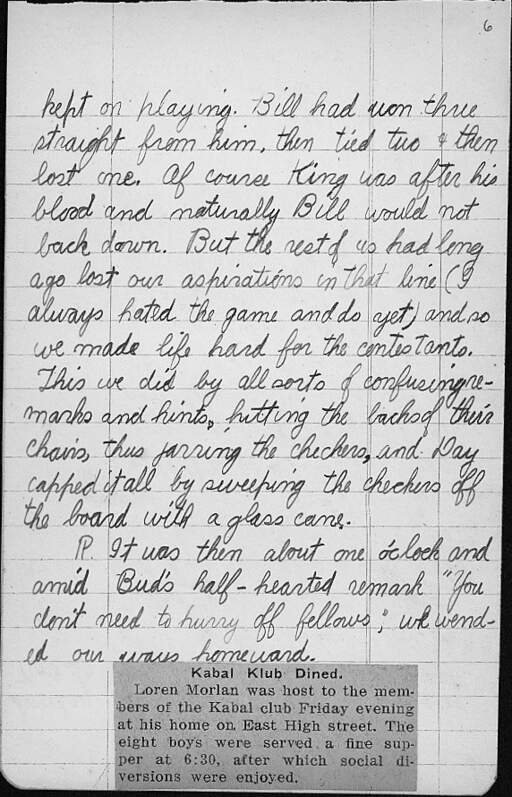 6
kept on playing. Bill had won three
straight from him, then tied two & then
lost one. Of course King was after his
blood and naturally Bill would not
back down. But the rest of us had long
ago lost our aspirations in that line (I
always hated the game and do yet) and so
we made life hard for the contestants.
This we did by all sorts of confusing re-
marks and hints, hitting the backs of their
chairs, thus jarring the checkers, and Day
capped it all by sweeping the checkers off
the board with a glass cane.
P. It was then about one o'clock and
amid Bud's half-hearted remark "You
don't need to hurry off fellows," we wend-
ed our ways homeward.
Kabal Klub Dined.
Loren Morlan was host to the mem-
bers of the Kabal club Friday evening
at his home on East High street. The
eight boys were served a fine sup-
per at 6:30, after which social di-
versions were enjoyed.